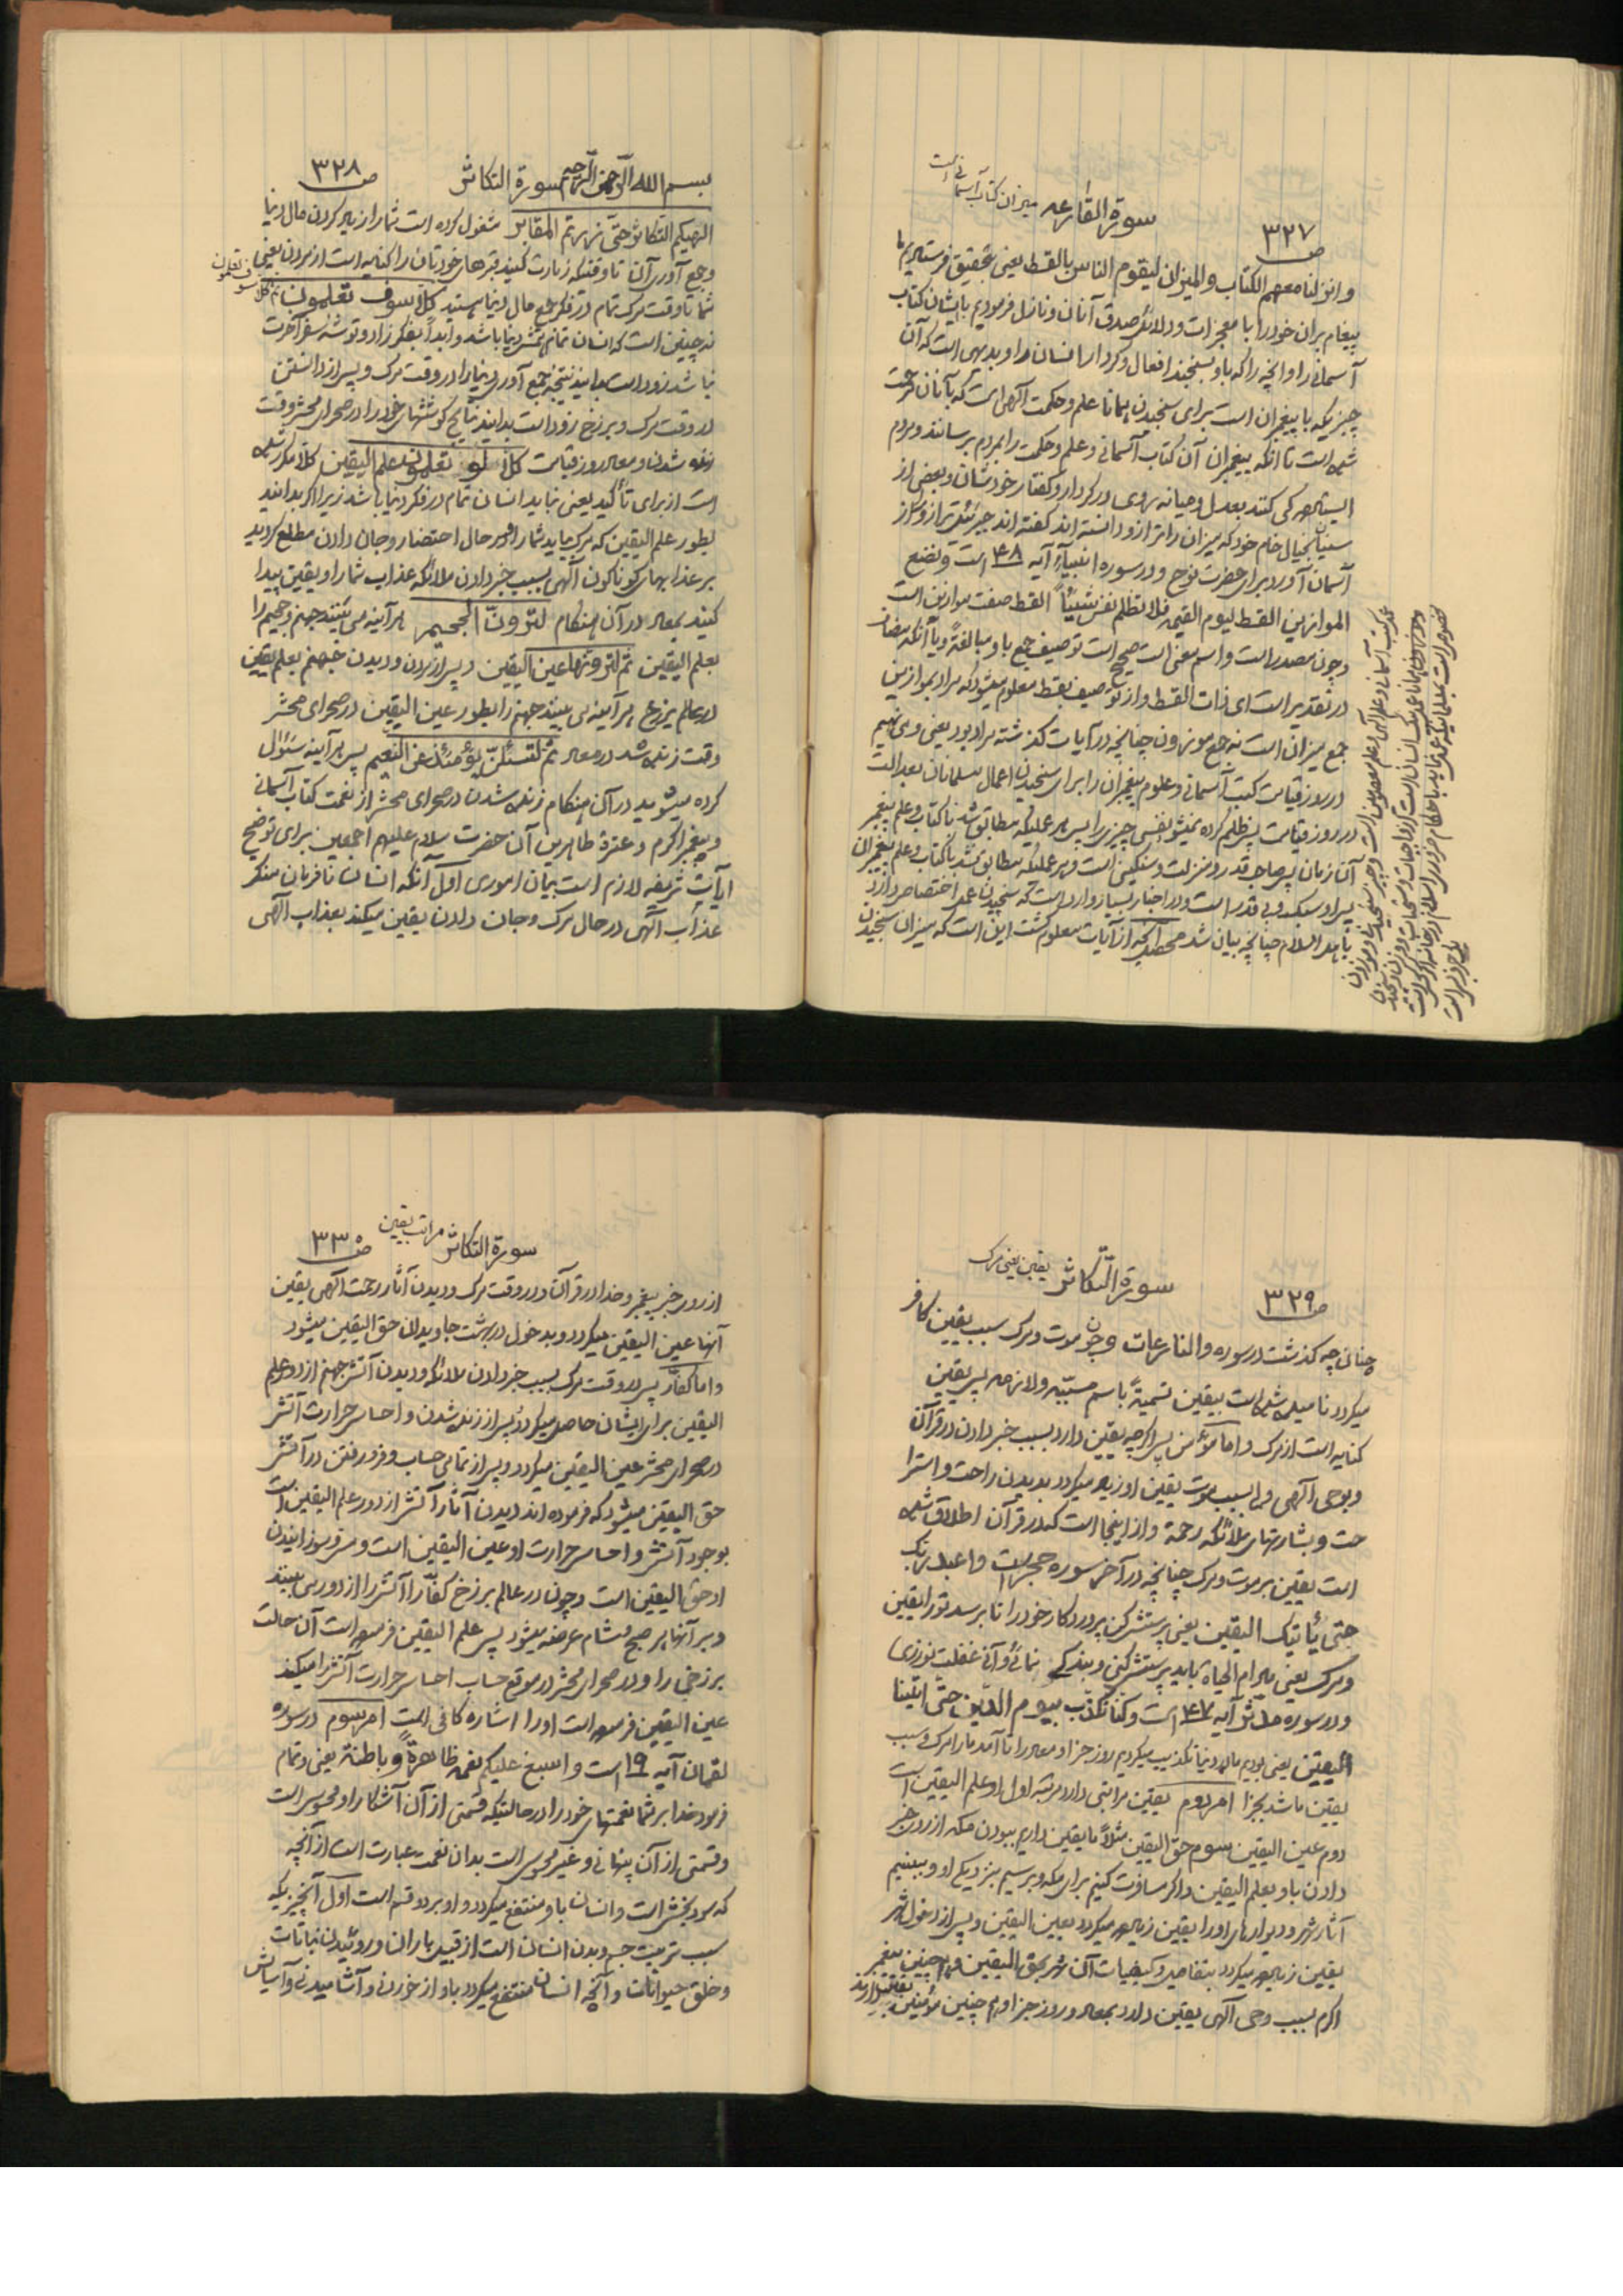 سورة القارعه میزان کتاب آسمانی است
ص ۳۲۷
و انزلنا معهم الکتاب والمیزان لیقوم الناس بالقسط یعنی بتحقیق فرستادیم ما
پیغام بران خود را با معجزات و دلائل صدق آنان و نازل فرمودیم با ایشان کتاب
آسمانی را و آنچه را که باو بسنجند افعال و کردار انسان را و بدیهی است که آن
چیزیکه با پیغمبران است برای سنجیدن همانا علم و حکمت آلهی است که بآنان
شده است تا آنکه پیغمبران آن کتاب آسمانی و علم و حکمت را بمردم برسانند و مردم
کنند بعدل و میانه روی در کردار و گفتار خودشان و بعضی از
سنیان بخیال خام خود که میزان را ترازو دانسته اند گفته اند جبرئیل ترازو را از
آسمان آورد برای حضرت نوح و در سوره انبیاء آیه ۴۸ است و نضع
الموازین القسط لیوم القیمه فلا تظلم نفس شیئاً القسط صفت موازین است
و چون مصدر است و اسم معنی است صحیح است توصیف جمع باو مبالغةً و یا آنکه مضاف
در تقدیر است ای ذات القسط و از توصیف بقسط معلوم میشود که مراد بموازین
جمع میزان است نه جمع موزون چنانچه در آیات گذشته مراد بود یعنی و می نهیم
در روز قیامت کتب آسمانی و علوم پیغمبران را برای سنجیدن اعمال مسلمانان بعدالت
در روز قیامت پس ظلم کرده نمیشود نفسی چیزی را پس هر عملیکه مطابق شد با کتاب و علم پیغمبر
آن زمان پس صاحب قدر و منزلت و سنگین است و هر عملیکه مطابق نشد با کتاب و علم پیغمبران
پس او سبک و بی قدر است و در اخبار بسیار وارد است که سنجیدن عمل اختصاص دارد
باهل اسلام چنانچه بیان شد محصل آنچه از آیات معلوم گشت این است که میزان سنجیدن
بسم الله الرحمن الرحیم سورة التکاثر
ص ۳۲۸
الهیکم التکاثر حتی زرتم المقابر مشغول کرده است شما را زیاد کردن مال دنیا
و جمع آوری آن تا وقتیکه زیارت کنید قبرهای خودتان را کنایه است از مردن یعنی
شما تا وقت مرگ تمام در فکر جمع مال دنیا هستید کلا سوف تعلمون ثم کلا سوف تعلمون
نه چنین است که انسان تمام همّش دنیا باشد و ابداً بفکر زاد و توشه سفر آخرت
نباشد زود است بدانید نتیجه جمع آوری دنیا را در وقت مرگ و پس از دانستن
در وقت مرگ و برزخ زود است بدانید نتایج کوششهای خود را در صحرای محشر وقت
زنده شدن و معاد روز قیامت کلا لو تعلمون علم الیقین کلا مکرر شده
است از برای تأکید یعنی نباید انسان تمام در فکر دنیا باشد زیرا اگر بدانید
بطور علم الیقین که مرگ بیاید شما را و در حال احتضار و جان دادن مطلع گردید
بر عذابهای گوناگون آلهی بسبب خبر دادن ملائکه عذاب شما را و یقین پیدا
کنید بمعاد در آن هنگام لترونّ الجحیم هر آینه می بینید جهنم و جحیم را
بعلم الیقین ثم لترونّها عین الیقین و پس از مردن و دیدن جهنم بعلم یقین
در عالم برزخ هر آینه می بینید جهنم را بطور عین الیقین در صحرای محشر
وقت زنده شدن در معاد ثم لتسئلنّ یومئذ عن النعیم پس هر آینه سئوال
کرده میشوید در آن هنگام زنده شدن در صحرای محشر از نعمت کتاب آسمانی
و پیغمبر اکرم و عترة طاهرین آن حضرت سلام علیهم اجمعین برای توضیح
آیات شریفه لازم است بیان اموری اول آنکه انسان نافرمان منکر
عذاب آلهی در حال مرگ و جان دادن یقین میکند بعذاب آلهی
سورة التکاثر یقین یعنی مرگ
ص ۳۲۹
چنان چه گذشت در سوره والنازعات و چون موت و مرگ سبب یقین کافر
میگردد نامیده شده است بیقین تسمیةً باسم مسبّبه و لازمه پس یقین
کنایه است از مرگ و اما مؤمن پس اگر چه یقین دارد بسبب خبر دادن در قرآن
و بوحی آلهی و اما بسبب موت یقین او زیاد میگردد بدیدن راحت و استرا
حت و بشارتهای ملائکه رحمة و از اینجا است که در قرآن اطلاق شده
است یقین بر موت و مرگ چنانچه در آخر سوره حجر است و اعبد ربک
حتی یأتیک الیقین یعنی پرستش کن پروردگار خود را تا برسد تو را یقین
و مرگ یعنی مادام الحیاة باید پرستش کنی و بندگی نمائی و آنی غفلت نورزی
و در سوره مدثر آیه ۴۷ است و کنا نکذّب بیوم الدّین حتی اتینا
الیقین یعنی بودیم ما در دنیا تکذیب میکردیم روز جزا و معاد را تا آمد ما را مرگ و سبب
یقین ما شد بجزا امر دوم یقین مراتبی دارد مرتبه اول او علم الیقین است
دوم عین الیقین سوم حق الیقین مثلاً ما یقین داریم ببودن مکه از روی خبر
دادن باو بعلم الیقین و اگر مسافرت کنیم برای مکه و برسیم بنزدیکی او و ببینیم
آثار شهر و دیوارهای او را یقین زیاد میگردد بعین الیقین و پس از دخول شهر
یقین زیاد میگردد بتفاصیل و کیفیات آن شهر بحق الیقین و هم چنین پیغمبر
اکرم بسبب وحی آلهی یقین دارد بمعاد و روز جزا و هم چنین مؤمنین
سورة التکاثر مراتب یقین
ص ۳۳۰
از روی خبر پیغمبر و خدا در قرآن و در وقت مرگ و دیدن آثار رحمت آلهی یقین
آنها عین الیقین میگردد و بدخول در بهشت جاویدان حق الیقین میشود
و اما کفّار پس در وقت مرگ بسبب خبر دادن ملائکه و دیدن آتش جهنم از دور علم
الیقین برای ایشان حاصل میگردد و پس از زنده شدن و احساس حرارت آتش
در صحرای محشر عین الیقین میگردد و پس از تمامی حساب و فرو رفتن در آتش
حق الیقین میشود که فرموده اند دیدن آثار آتش از دور علم الیقین است
بوجود آتش و احساس حرارت او عین الیقین است و مس و سوزانیدن
او حق الیقین است و چون در عالم برزخ کفّار را آتش را از دور می بینند
و بر آنها هر صبح و شام عرضه میشود پس علم الیقین فرموده است آن حالت
برزخی را و در صحرای محشر در موقع حساب احساس حرارت آتش را میکند
عین الیقین فرموده است او را اشاره کافی است امر سوم در سوره
لقمان آیه ۱۹ است و اسبغ علیکم نعمه ظاهرةً و باطنة یعنی و تمام
فرمود خدا بر شما نعمتهای خود را در حالتیکه قسمتی از آن آشکار و محسوس است
و قسمتی از آن پنهانی و غیر محسوس است بدان نعمت عبارت است از آنچه
که سود بخش است و انسان باو منتفع میگردد و او بر دو قسم است اول آنچیزیکه
سبب تربیت جسم و بدن انسان است از قبیل باران و روئیدن نباتات
و خلق حیوانات و آنچه انسان منتفع میگردد باو از خوردنی و آشامیدنی و آسایش